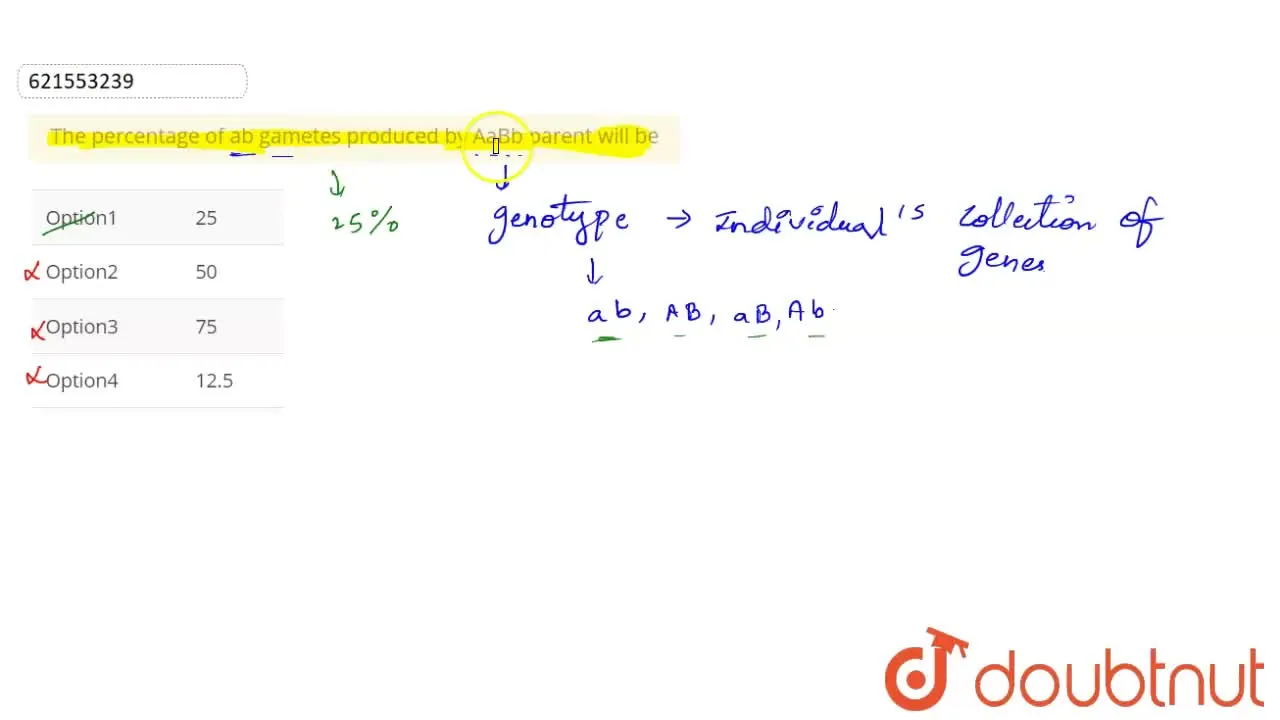 621553239
The percentage of ab gametes produced by AaBb parent will be
Option1 25
25% genotype → Individual's collection of
genes
Option2 50
ab, AB, aB, Ab
Option3 75
Option4 12.5
doubtnut